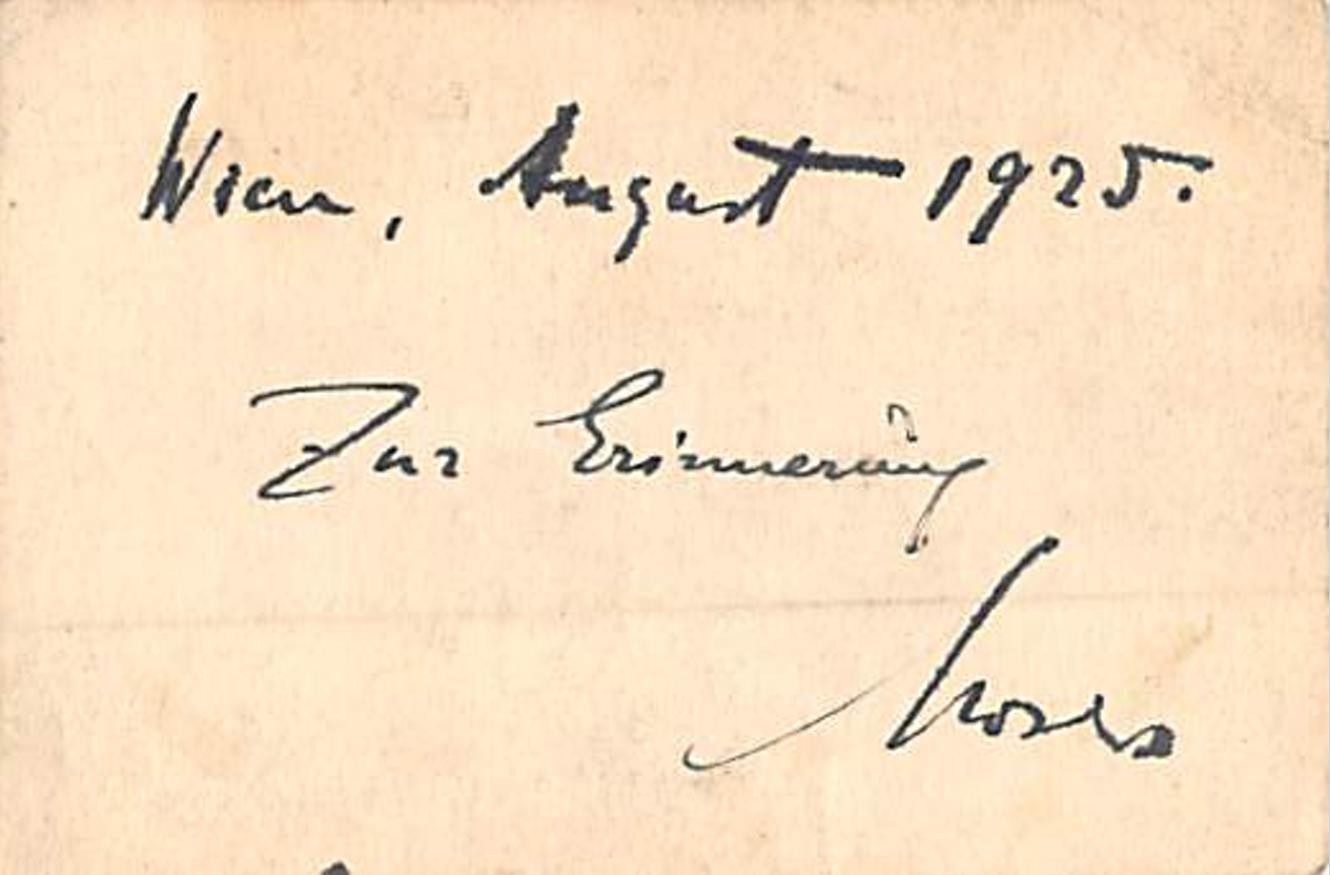 Wien, August 1925.
Zur Erinnerung
Moses